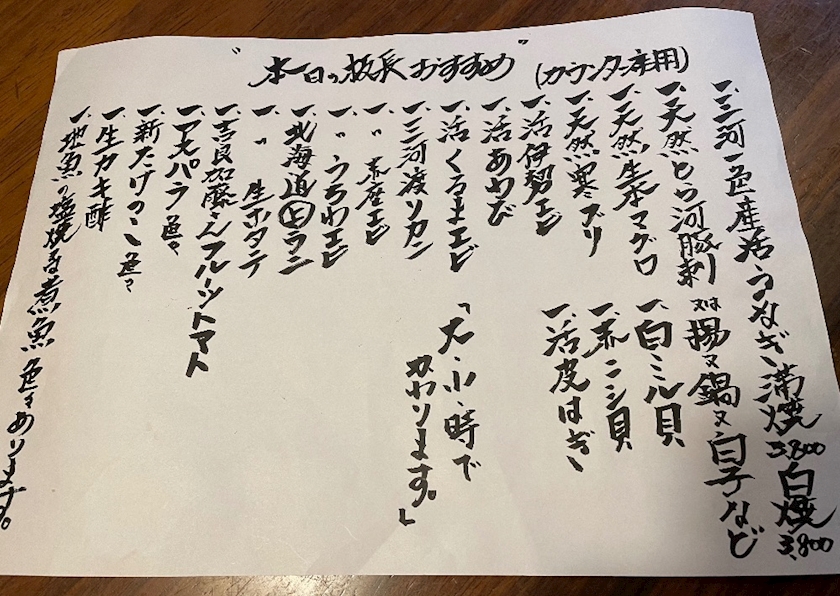 "本日の板長おすすめ"(カウンター席用)
一、三河一色産活うなぎ蒲焼3,800白焼3,800
一、天然とら河豚刺又は揚又鍋又白子など
一、天然生本マグロ
一、白ミル貝
一、天然寒ブリ
一、赤ニシ貝
一、活伊勢エビ
一、活皮はぎ
一、活あわび
一、活くるまエビ
「大、小、時で
かわります。」
一、三河渡リカン
一、〃赤座エビ
一、〃うちわエビ
一、北海道生ウニ
一、〃生ホタテ
一、吉良加藤さんフルーツトマト
一、アスパラ色々
一、新たけのこ色々
一、生カキ酢
一、地魚の塩焼る煮魚色々あります。